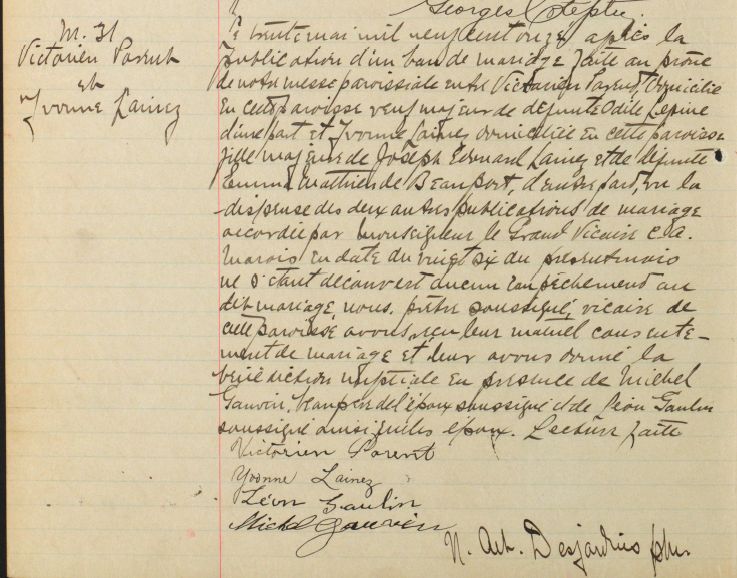 Georges
M. 31
Victorien Parent
et
Yvonne Lainez
Le trente mai mil neuf cent onze après la
publication d'un ban de mariage faite au prône
de notre messe paroissiale entre Victorien Parent, domicilié
en cette paroisse veuf majeur de défunte Odile Lepine
d'une part et Yvonne Lainez domiciliée en cette paroisse
fille majeure de Joseph Edmond Lainez et de défunte
Emma Mathieu de Beauport, d'autre part, vu la
dispense des deux autres publications de mariage
accordée par Monseigneur le Grand Vicaire C. A.
Marois en date du vingt six du present mois
ne s'étant découvert aucun empêchement au
dit mariage, nous, prêtre soussigné, vicaire de
cette paroisse avons reçu leur mutuel consente-
ment de mariage et leur avons donné la
bénédiction nuptiale en présence de Michel
Gauvin, beau père de l'époux soussigné et de Léon Gaulin
soussigné ainsi que les époux. Lecture faite
Victorien Parent
Yvonne Lainez
Léon Gaulin
Michel Gauvin
N. Art. Desjardins ptre